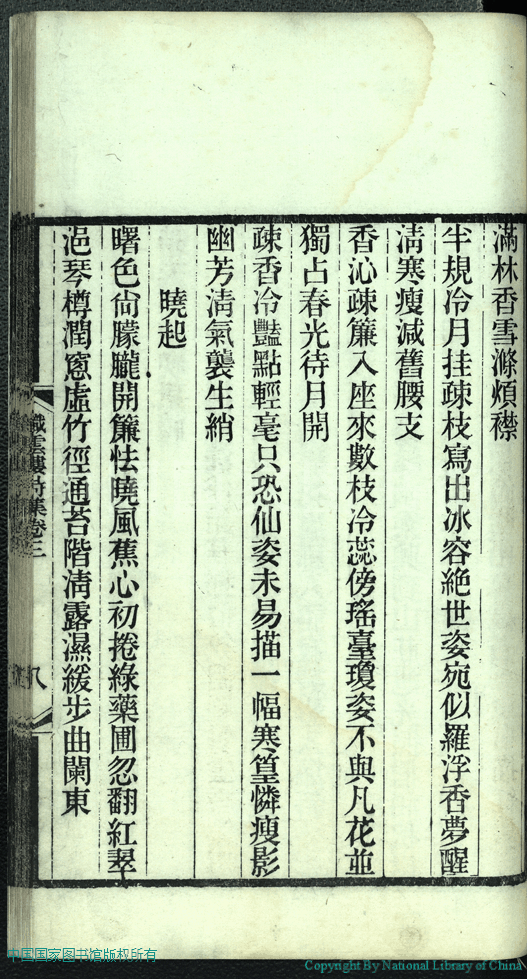 滿林香雪滌煩襟
半規冷月挂疎枝寫出冰容絕世姿宛似羅浮香夢醒
淸寒瘦減舊腰支
香沁疎簾入座來數枝冷蕊傍瑤臺瓊姿不與凡花並
獨占春光待月開
疎香冷豔點輕毫只恐仙姿未易描一幅寒篁憐瘦影
幽芳淸氣襲生綃
曉起
曙色尙朦朧開簾怯曉風蕉心初捲綠藥圃忽翻紅翠
浥琴樽潤窻虛竹徑通苔階淸露濕緩步曲闌東
織雲樓詩集卷三
八
中国国家图书馆版权所有
Copyright By National Library of China